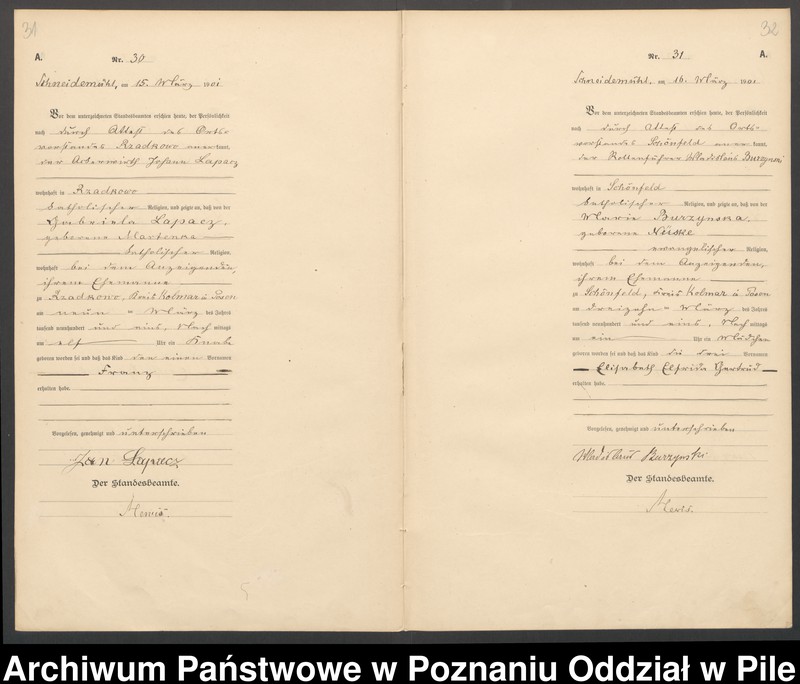 31
A.
Nr. 30
Schneidemühl, am 15. März 1901
Vor dem unterzeichneten Standesbeamten erschien heute, der Persönlichkeit
nach durch Attest des Orts-
vorstandes Rzadkowo anerkannt,
der Ackerwirth Johann Lapacz
wohnhaft in Rzadkowo
katholischer Religion, und zeigte an, daß von der
Gabriela Lapacz,
geborene Marienke
katholischer Religion,
wohnhaft bei dem Anzeigenden,
ihrem Ehemanne
zu Rzadkowo, Kreis Kolmar i. Posen
am neun = März des Jahres
tausend neunhundert und eins, Nach mittags
um elf Uhr ein Knabe
geboren worden sei und daß das Kind den einen Vornamen
Franz
erhalten habe.
Vorgelesen, genehmigt und unterschrieben
Jan Lapacz
Der Standesbeamte.
32
Nr. 31
A.
Schneidemühl, am 16. März 1901
Vor dem unterzeichneten Standesbeamten erschien heute, der Persönlichkeit
nach durch Attest des Orts-
vorstandes Schönfeld aner kannt,
der Rottenführer Wladislaus Burzynski
wohnhaft in Schönfeld
katholischer Religion, und zeigte an, daß von der
Marie Burzynska,
geborene Nüske
evangelischer Religion,
wohnhaft bei dem Anzeigenden,
ihrem Ehemanne
zu Schönfeld, Kreis Kolmar i. Posen
am dreizehn = März des Jahres
tausend neunhundert und eins, Nach mittags
um ein Uhr ein Mädchen
geboren worden sei und daß das Kind die drei Vornamen
Elisabeth Elfrida Gertrud
erhalten habe.
Vorgelesen, genehmigt und unterschrieben
Wladislaus Burzynski
Der Standesbeamte.
Archiwum Państwowe w Poznaniu Oddział w Pile